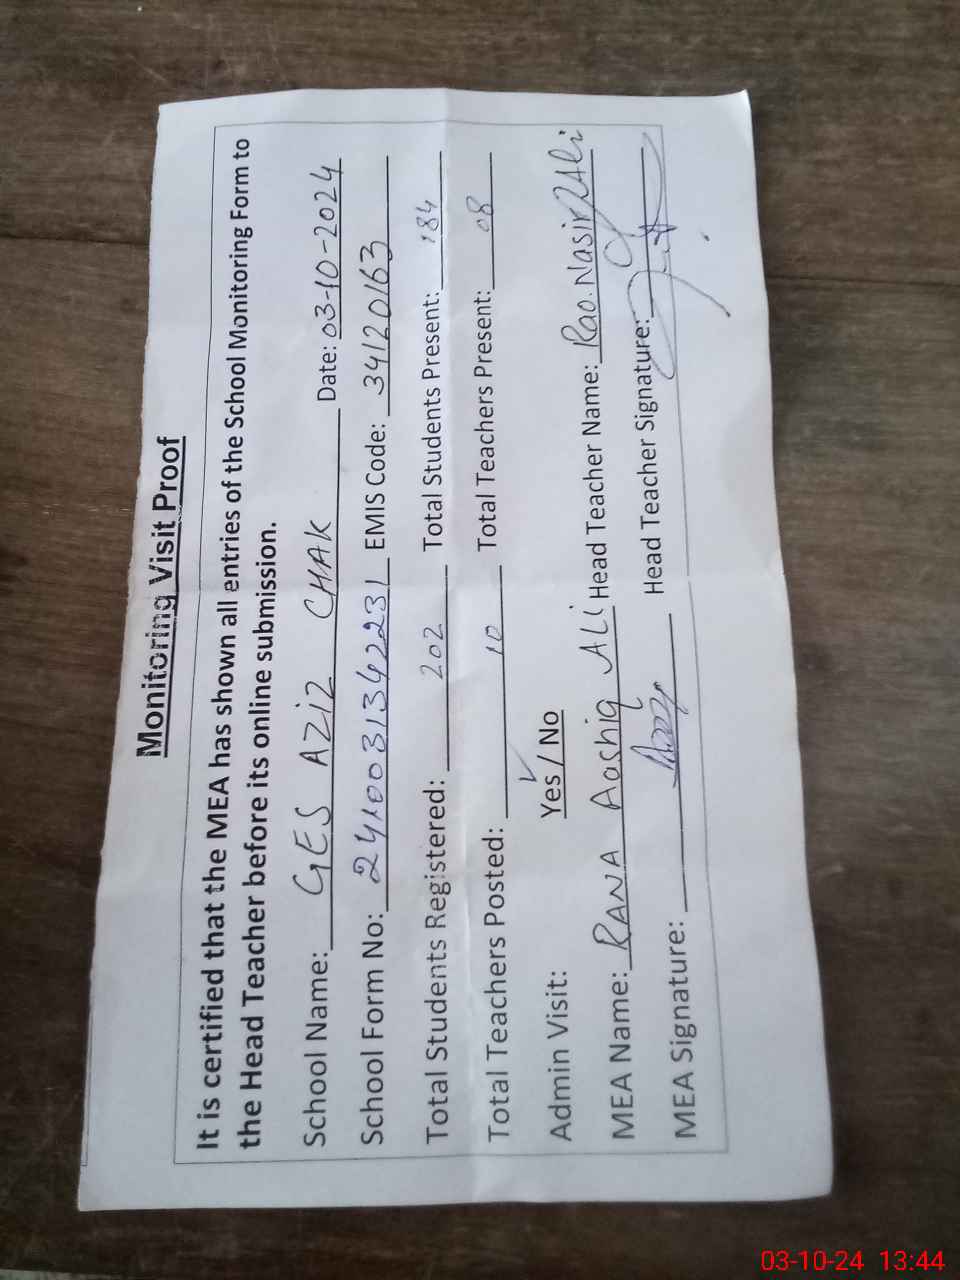 Monitoring Visit Proof
It is certified that the MEA has shown all entries of the School Monitoring Form to
the Head Teacher before its online submission.
School Name: GES AZIZ CHAK Date: 03-10-2024
School Form No: 2410031342231 EMIS Code: 34120163
Total Students Registered: 202 Total Students Present: 184
Total Teachers Posted: 10 Total Teachers Present: 08
Admin Visit: Yes / No
MEA Name: RANA Aashiq ALi Head Teacher Name: Rao. Nasir Ali
MEA Signature: Head Teacher Signature:
03-10-24 13:44